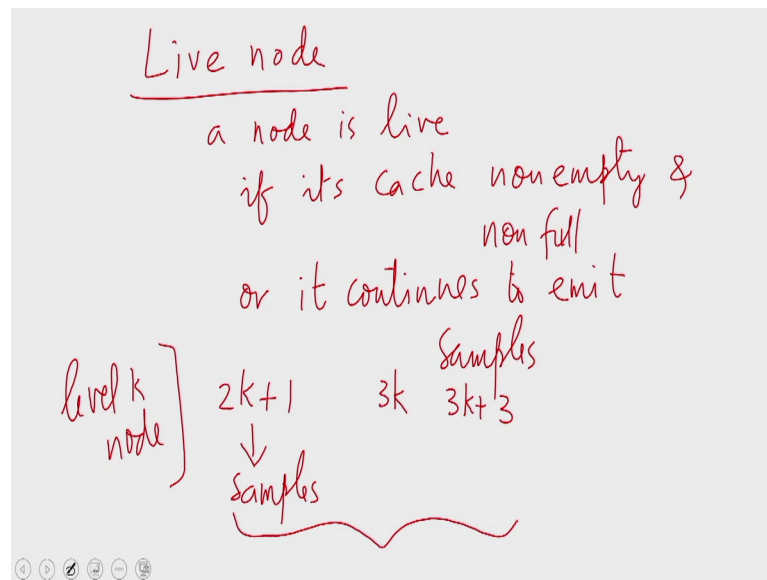 Live node
a node is live
if its cache nonempty &
non full
or it continues to emit
Samples
level k node ] 2k+1 3k 3k+3
↓
Samples